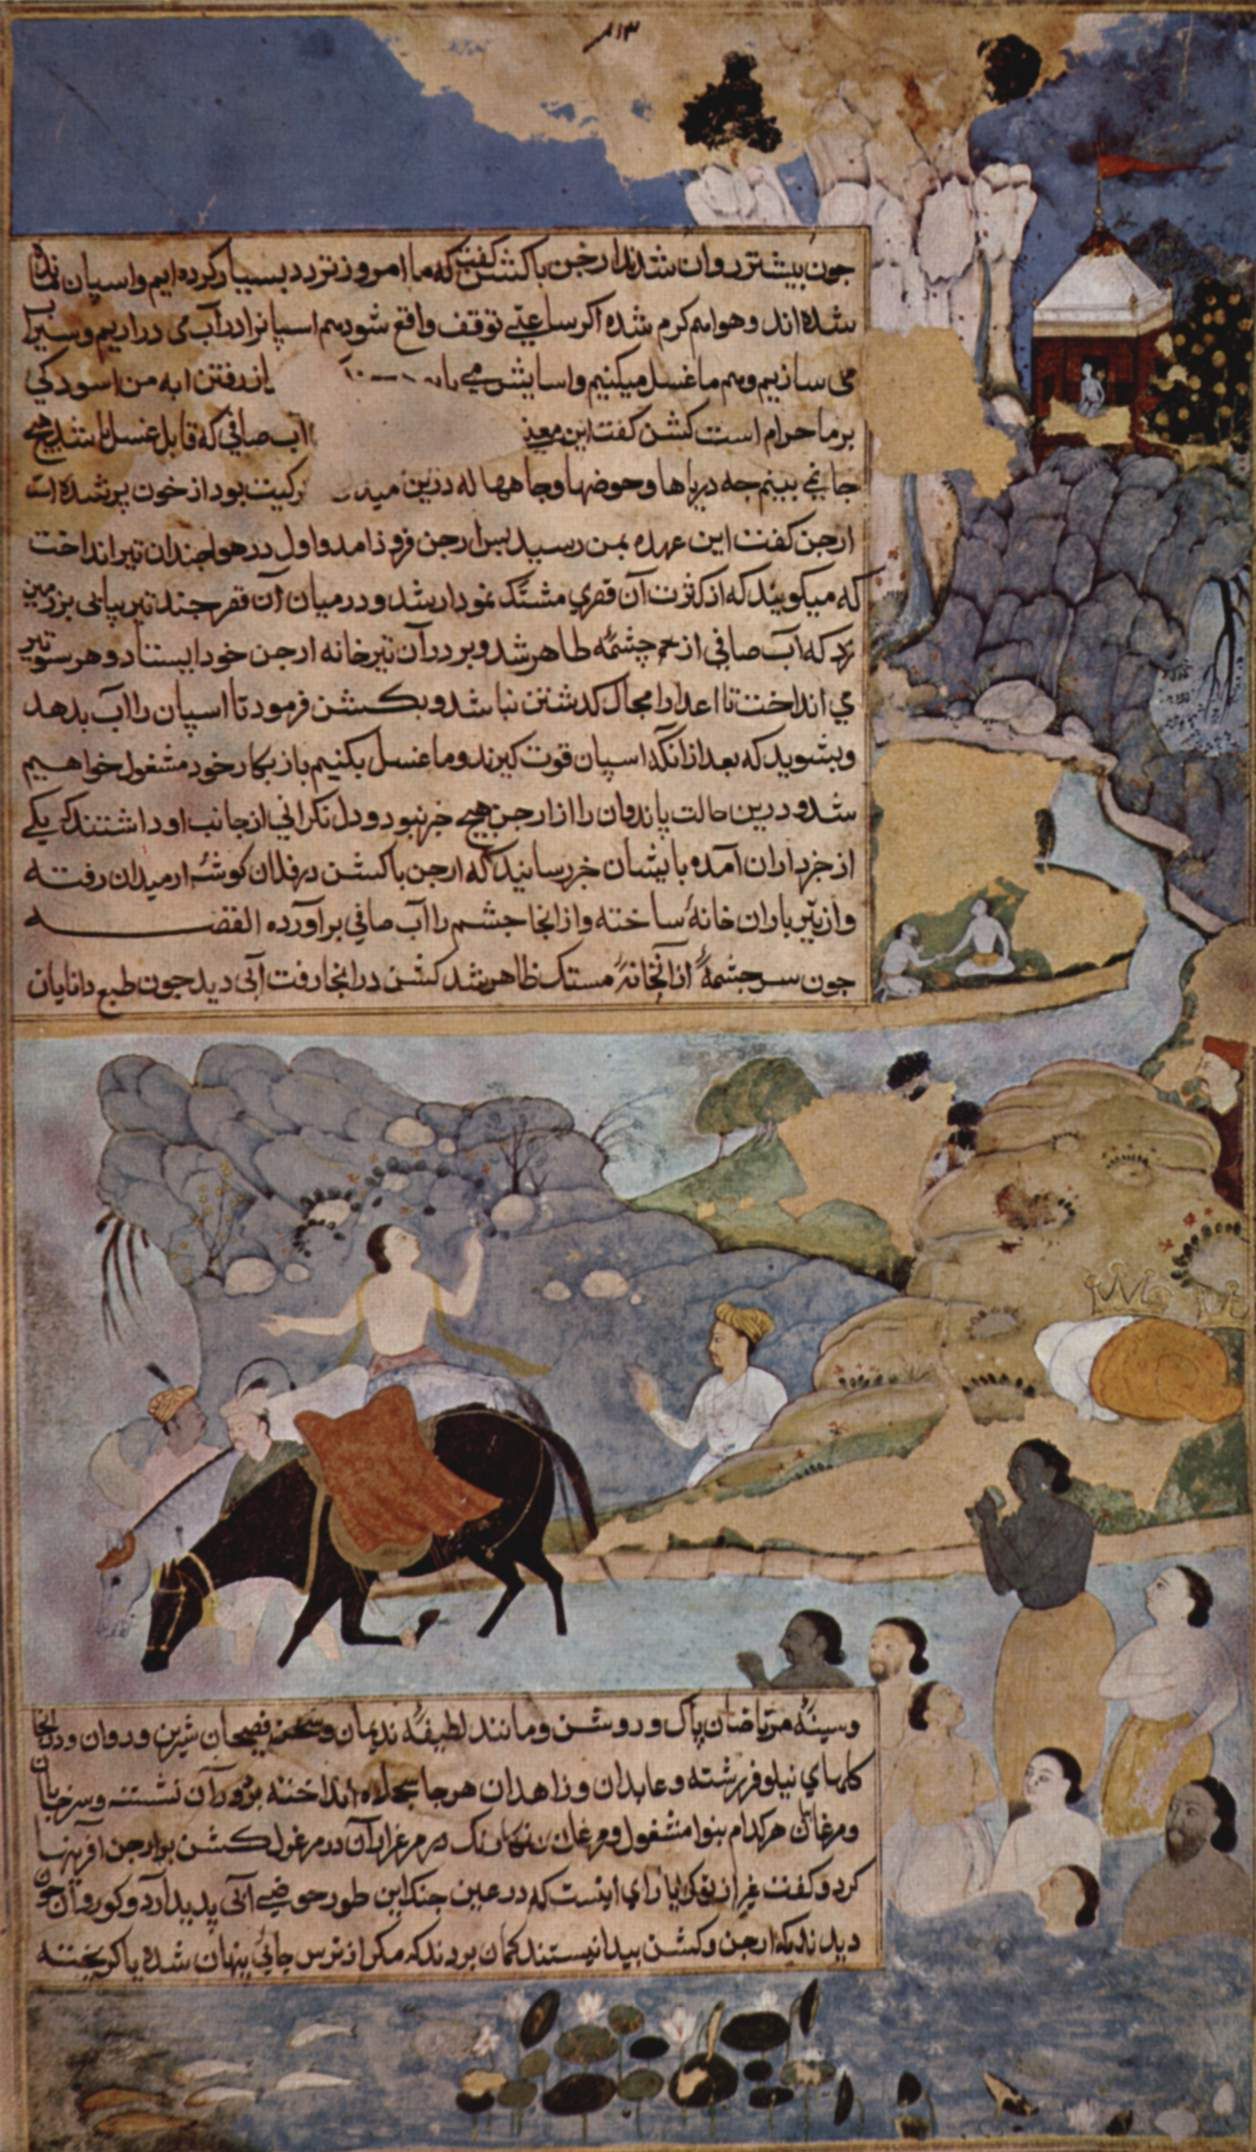 ۱۱۳
چون بیشتر روان شدند ارجن با کشن گفت که ما امروز تردد بسیار کرده ایم و اسپان مانده
شده اند و هوا هم کرم شده اکر ساعتی توقف واقع شود هم اسپانرا در آب می در اریم و سیراب
می سازیم و هم ما غسل میکنیم و اسایش می از رفتن ابه من اسودکی
بر ما حرام است کشن کفت این معنی آب صافی که قابل غسل باشد هیچ
جا نمی بینم چه دریاها و حوضها و چاهها که درین از خون پر شده است
ارجن کفت این عهده بمن رسید پس ارجن فرود امد و اول در هوا چندان تیر انداخت
که میکویند که از کثرت آن قصری مشبک نمودار شد و در میان آن قصر چند تیر بزمین
زد که آب صافی از چشمه ظاهر شد و بر در آن تیر خانه ارجن خود ایستاد و هر سو تیر
می انداخت تا اعدا را مجال کذشتن نباشد و بکشن فرمود تا اسپان را آب بدهد
و بشوید که بعد از انکه اسپان قوت کیرند و ما غسل بکنیم باز بکار خود مشغول خواهیم
شد و درین حالت پاندوان را از ارجن هیچ خبر نبود و دل نکرانی از جانب او داشتند که یکی
از خبرداران آمده بایشان خبر رسانید که ارجن با کشن در فلان کوشه از میدان رفته
و از تیر باران خانه ساخته و از انجا چشم را آب صافی برآورده القصه
چون سرچشمه از آنخانه مشبک ظاهر شد کشن در انجا رفت آبی دید چون طبع دانایان
و سینه مرتاضان پاک و روشن و مانند لطیفه ندیمان و سخن فصیحان شیرین و روان و در انجا
کلهای نیلوفر رسته و عابدان و زاهدان هر جا سجاده انداخته بر در آن نشسته
و مرغان هر کدام بنوا مشغول و مرغان در مرغزار آن در مرغول کشن بر ارجن آفرینها
کرد و کفت غیر از تو کرا یارای اینست که در عین جنک این طور حوضی آبی پدید آرد و کوروان چون
دیدند که ارجن و کشن پیدا نیستند کمان بردند که مکر از ترس جائی پنهان شده یا کریخته